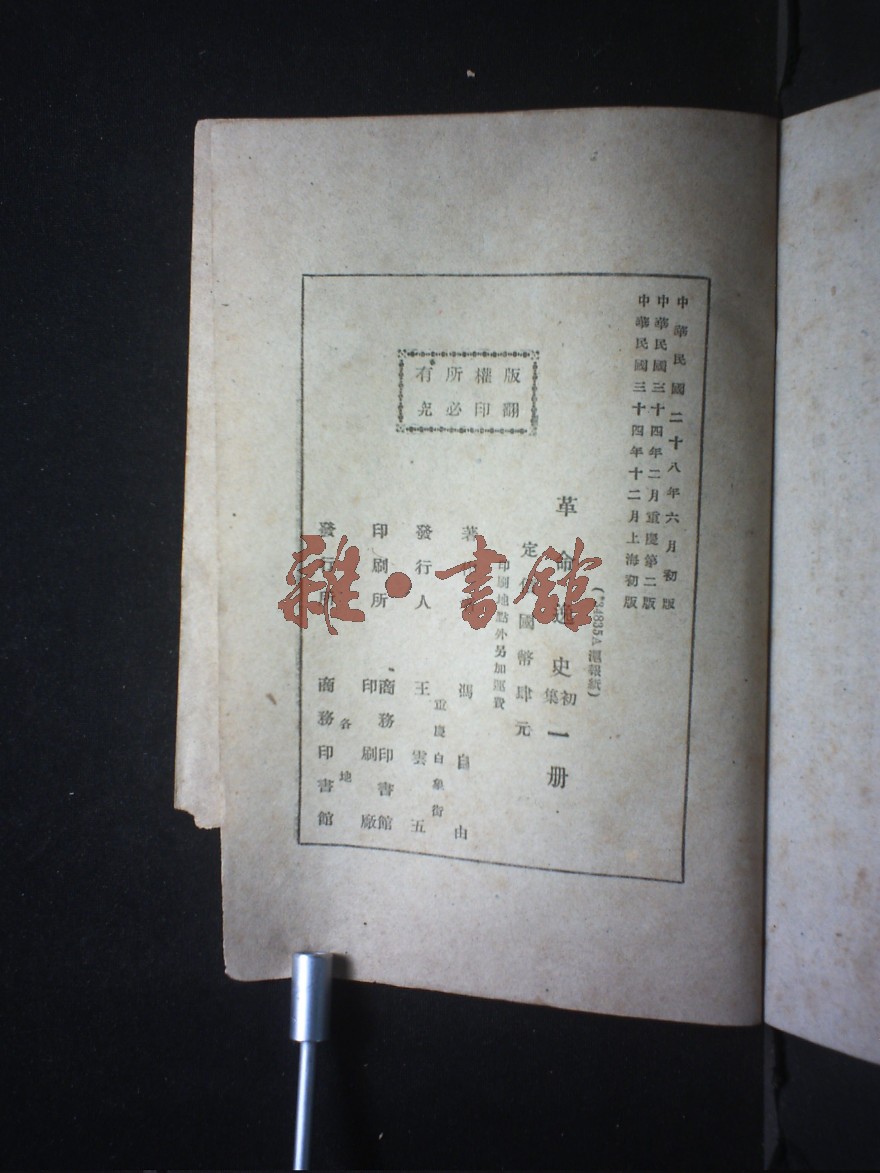 中華民國二十八年六月初版
中華民國三十四年二月重慶第二版
中華民國三十四年十二月上海初版
(*34835A 滬報紙)
革命逸史 初集 一册
定價國幣肆元
印刷地點外另加運費
著 馮自由
重慶白象街
發行人 王雲五
印刷所 商務印書館
印刷廠
各地
發行所 商務印書館
版權所有
翻印必究
雜·書館